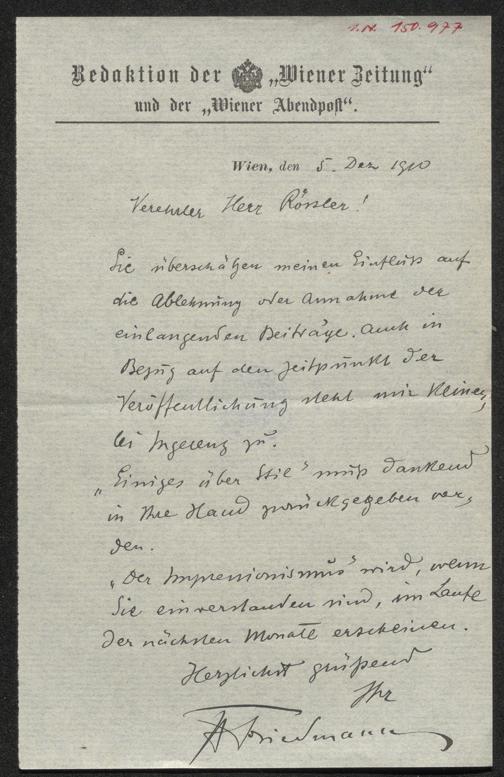 I.N. 150.977
Redaktion der „Wiener Zeitung“
und der „Wiener Abendpost“.
Wien, den 5. Dez 1910
Verehrter Herr Rössler!
Sie überschätzen meinen Einfluß auf
die Ablehnung oder Annahme der
einlangenden Beiträge. Auch in
Bezug auf den Zeitpunkt der
Veröffentlichung steht mir keiner,
lei Ingerenz zu.
„Einiges über Stil“ muß dankend
in Ihre Hand zurückgegeben wer,
den.
„Der Impressionismus“ wird, wenn
Sie einverstanden sind, im Laufe
der nächsten Monate erscheinen.
Herzlichst grüßend
Ihr
Friedmann